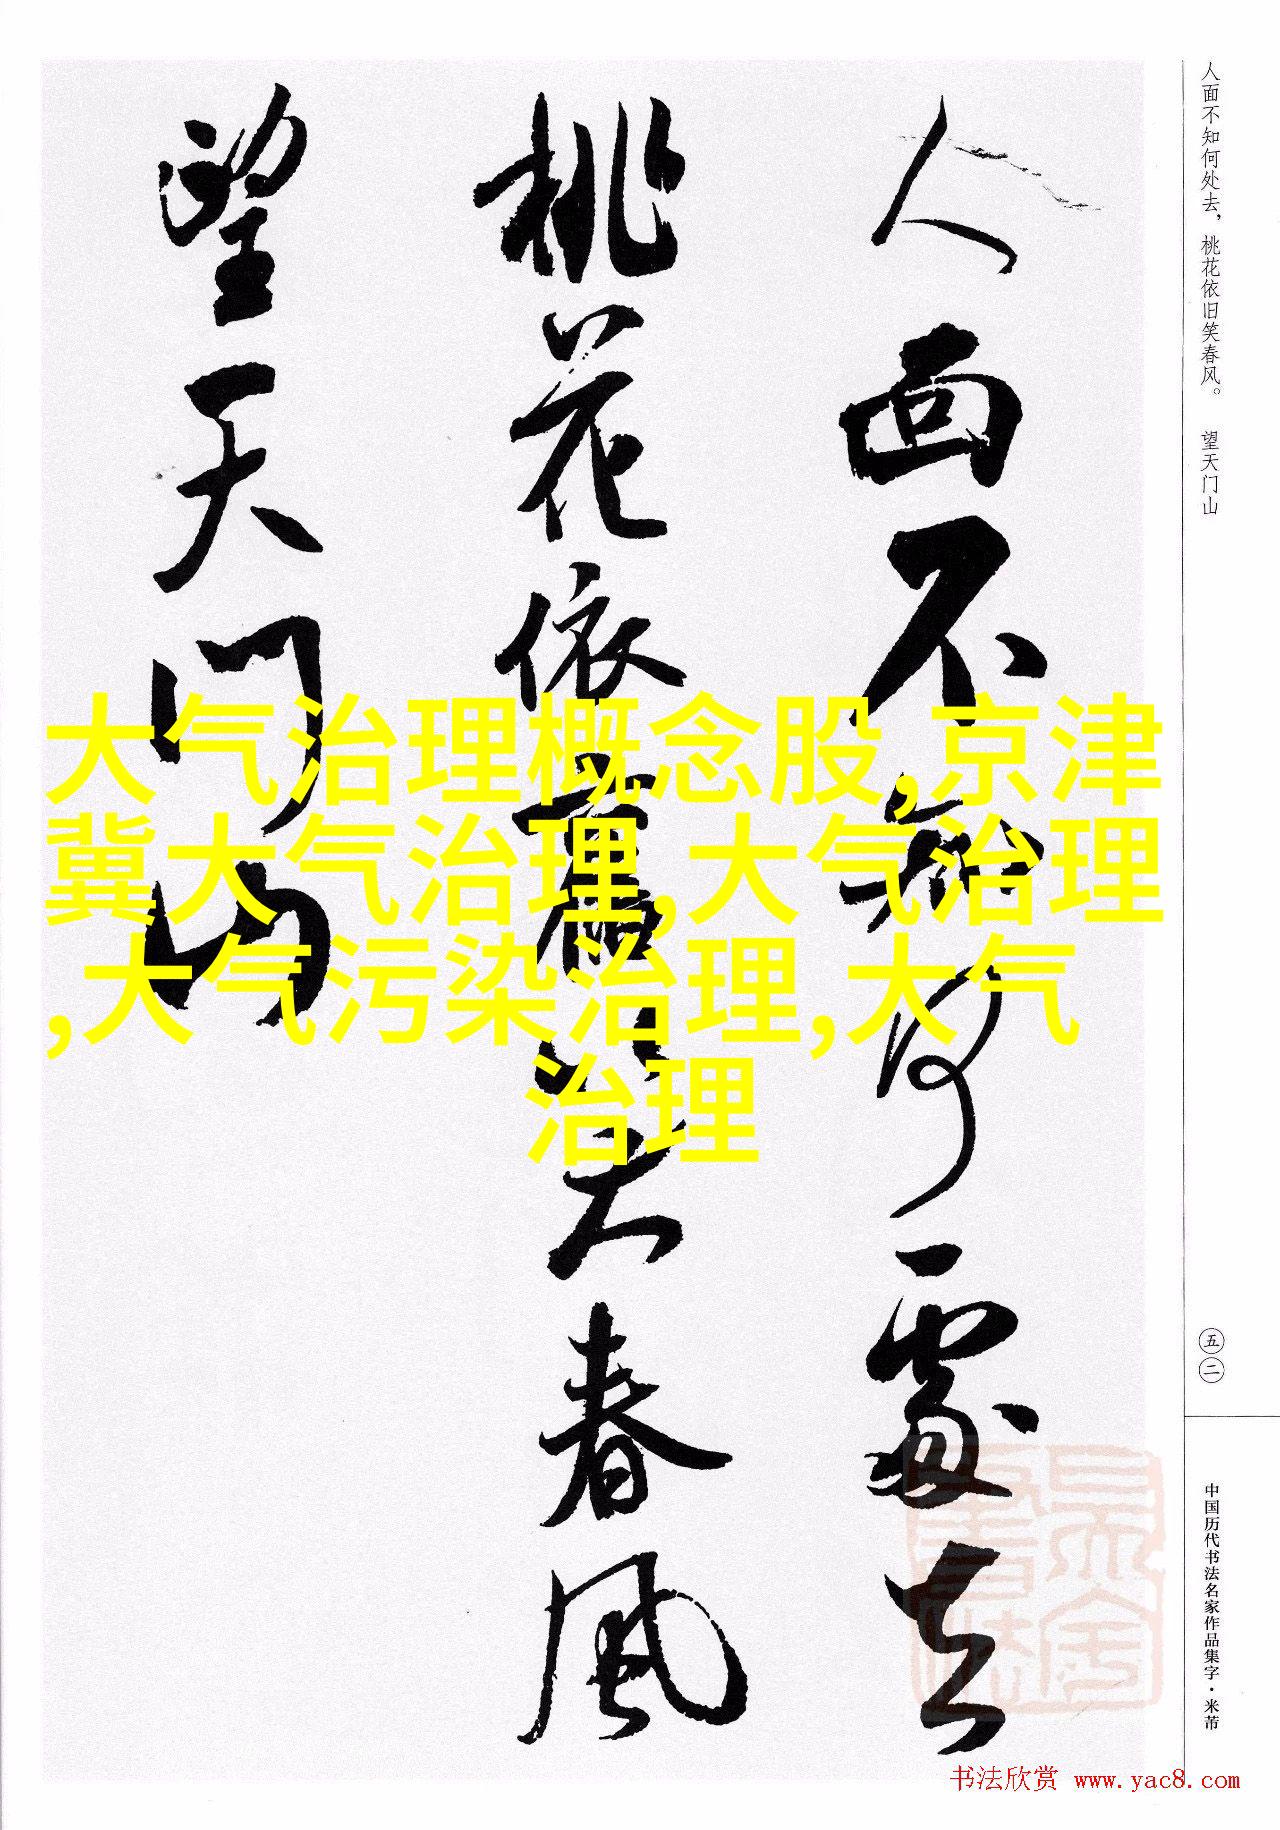 人面不知何處去
桃花依舊笑春風
望天门山
大气治理概念股,京津
冀大气治理,大气治理
,大气污染治理,大气
治理
人面不知何处去，桃花依旧笑春风。 望天门山
五二
中国历代书法名家作品集字·米芾
书法欣赏 www.yac8.com